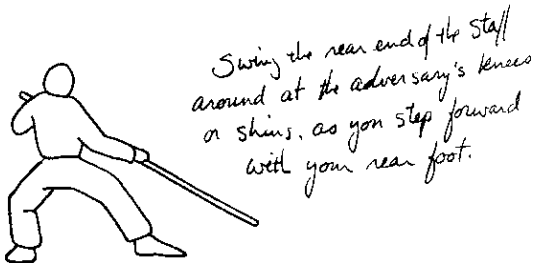 Swing the rear end of the staff
around at the adversary's knees
or shins, as you step forward
with your rear foot.